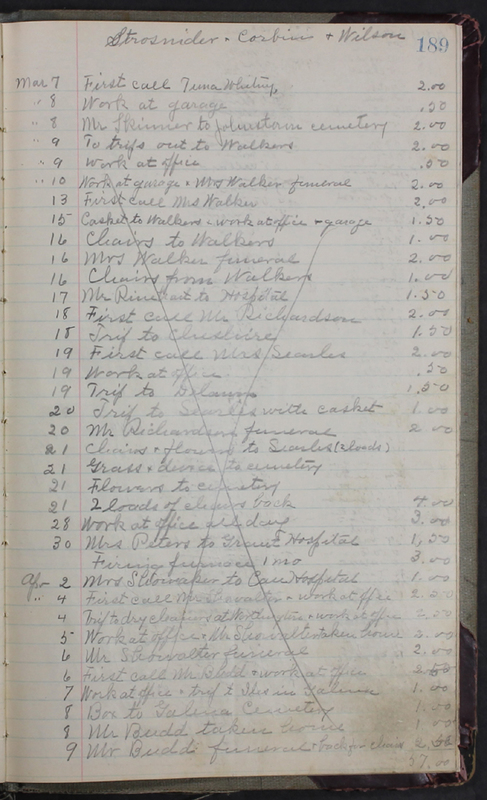 Strosnider + Corbin + Wilson 189
Mar 7 First call Tuna Whiting 2.00
" 8 Work at garage .50
" 8 Mr Skinner to Johnstown cemetery 2.00
" 9 To trips out to Walkers 2.00
" 9 Work at office .50
" 10 Work at garage + Mrs Walker funeral 2.00
13 First call Mrs Walker 2.00
15 Casket to Walkers + work at office + garage 1.50
16 Chairs to Walkers 1.00
16 Mrs Walker funeral 2.00
16 Chairs from Walkers 1.00
17 Mr Rinehart to Hospital 1.50
18 First call Mr Richardson 2.00
18 Trip to Cheshire 1.50
19 First call Mrs Searles 2.00
19 Work at office .50
19 Trip to 1.50
20 Trip to Searles with casket 1.00
20 Mr Richardson funeral 2.00
21 Chairs + flowers to Searles (2 loads)
21 Grass + device to cemetery
21 Flowers to cemetery
21 2 loads of chairs back 4.00
28 Work at office all day 3.00
30 Mrs Peters to Grant Hospital 1.50
Firing furnace 1 mo 3.00
Apr 2 Mrs to Hospital 1.00
" 4 First call + work at office 2.50
4 Trip to dry cleaners at Worthington + work at office
5 Work at office + Mr Stewalter taken home 2.00
6 Mr Stewalter funeral 2.00
6 First call Mr Budd + work at office 2.50
7 Work at office + trip in Galena 1.00
8 Box to Galena Cemetery 1.00
8 Mr Budd taken home 1.00
9 Mr Budd funeral + back for chairs 2.50
57.00